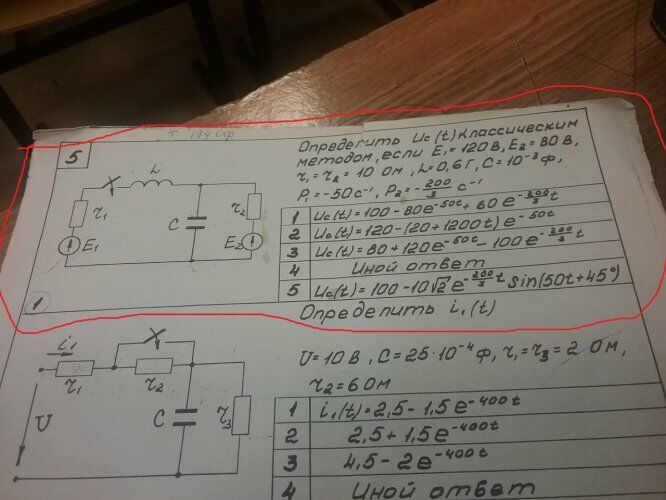 Т. 194 стр
5
Определить Uc(t) классическим
методом, если E₁=120 В, E₂=80 В,
r₁=r₂=10 Ом, L=0,6 Г, C=10⁻³ ф,
P₁=-50 c⁻¹, P₂=-200/3 c⁻¹
L
r₁
C
r₂
E₁
E₂
1 Uc(t)=100-80e^-50t+60e^-200/3 t
2 Uc(t)=120-(20+1200t)e^-50t
3 Uc(t)=80+120e^-50t-100e^-200/3 t
4 Иной ответ
5 Uc(t)=100-10√2e^-200/3 t sin(50t+45°)
1
Определить i₁(t)
i₁
r₁
r₂
U
C
r₃
U=10 В, C=25·10⁻⁴ ф, r₁=r₃=2 Ом,
r₂=6 Ом
1 i₁(t)=2,5-1,5e^-400t
2 2,5+1,5e^-400t
3 4,5-2e^-400t
4 Иной ответ